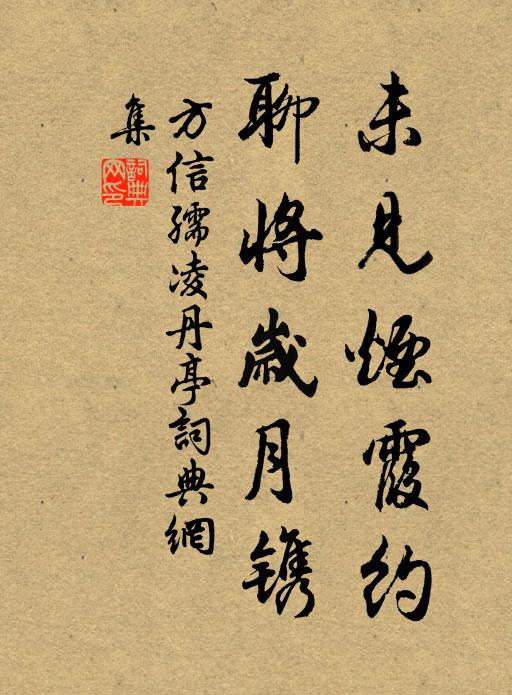 未見煙霞約
聊將歲月鐫
方信孺凌丹亭詞典網
集
詞典網印